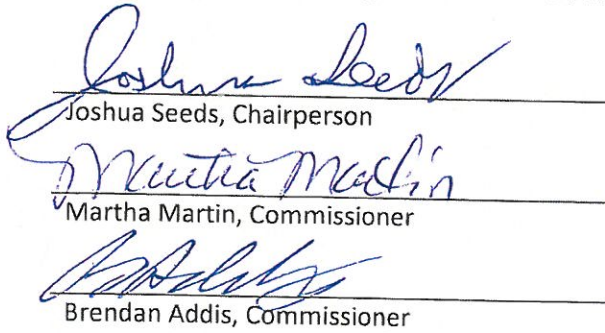 Joshua Seeds
Joshua Seeds, Chairperson
Martha Martin
Martha Martin, Commissioner
Brendan Addis, Commissioner